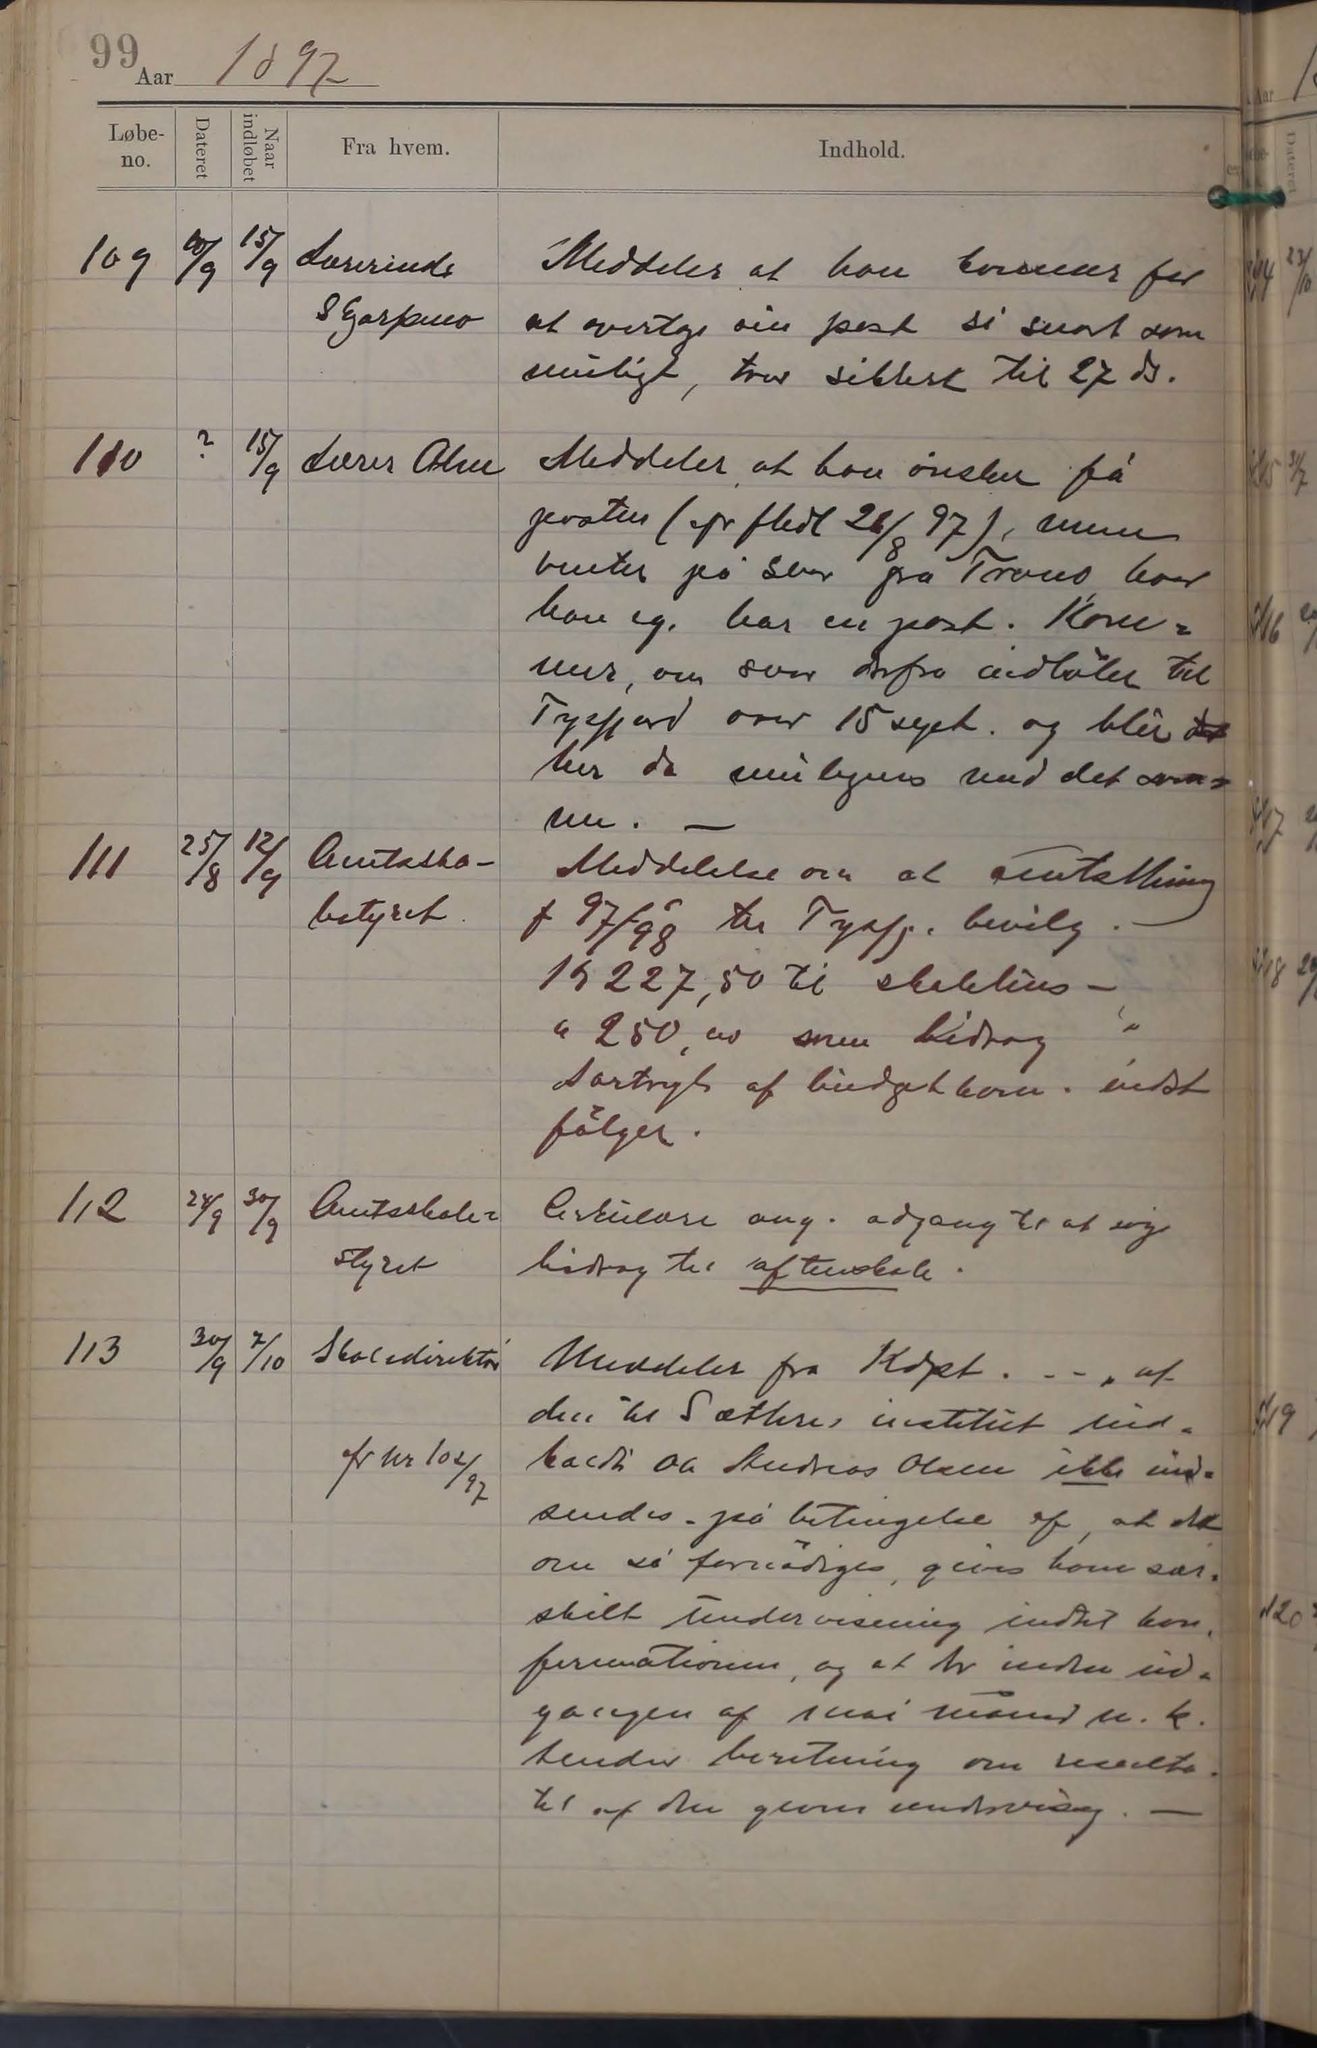 99
Aar 1897
Løbe-no. Dateret Naar indløbet Fra hvem. Indhold.
109 10/9 15/9 Lærerinde Meddeler at hon kommer for
at overtage sin post så snart som
muligt, tror sikkert til 27 ds.
110 ? 15/9 Lærer Olsen Meddeler at han ønsker få
posten (cfr 26/8 97), men
venter på svar fra Tranø, hvor
han og. har en post. Kom=
mer, om svar derfra indløber til
Tysfjord over 15 sept. og blir
her da
me. —
111 25/8 12/9 Amtssko- Meddelelse om at amtsthing
lestyret. f 97/98 ter Tysfj. bevilg. —
Kr 227,50 til skoleløns —
" 250,00 som bidrag "
Særtryk af budgetkom. indst
følger.
112 24/9 30/9 Amtsskole= Cirkulære ang. adgang til at søge
styret bidrag til aftenskole.
113 30/9 7/10 Skoledirektør Meddeler fra Kdpt. - - „ at
den til Sæthres institut ind-
cfr nr 102/97 kaldte Andreas Olsen ikke ind-
sendes - på betingelse af, at det
om så fornødiges, gives ham sær-
skilt undervisning indtil kon-
firmationen, og at der inden ud-
gangen af mai måned n. k.
sendes beretning om resulta-
tet af den givne undervisng. —